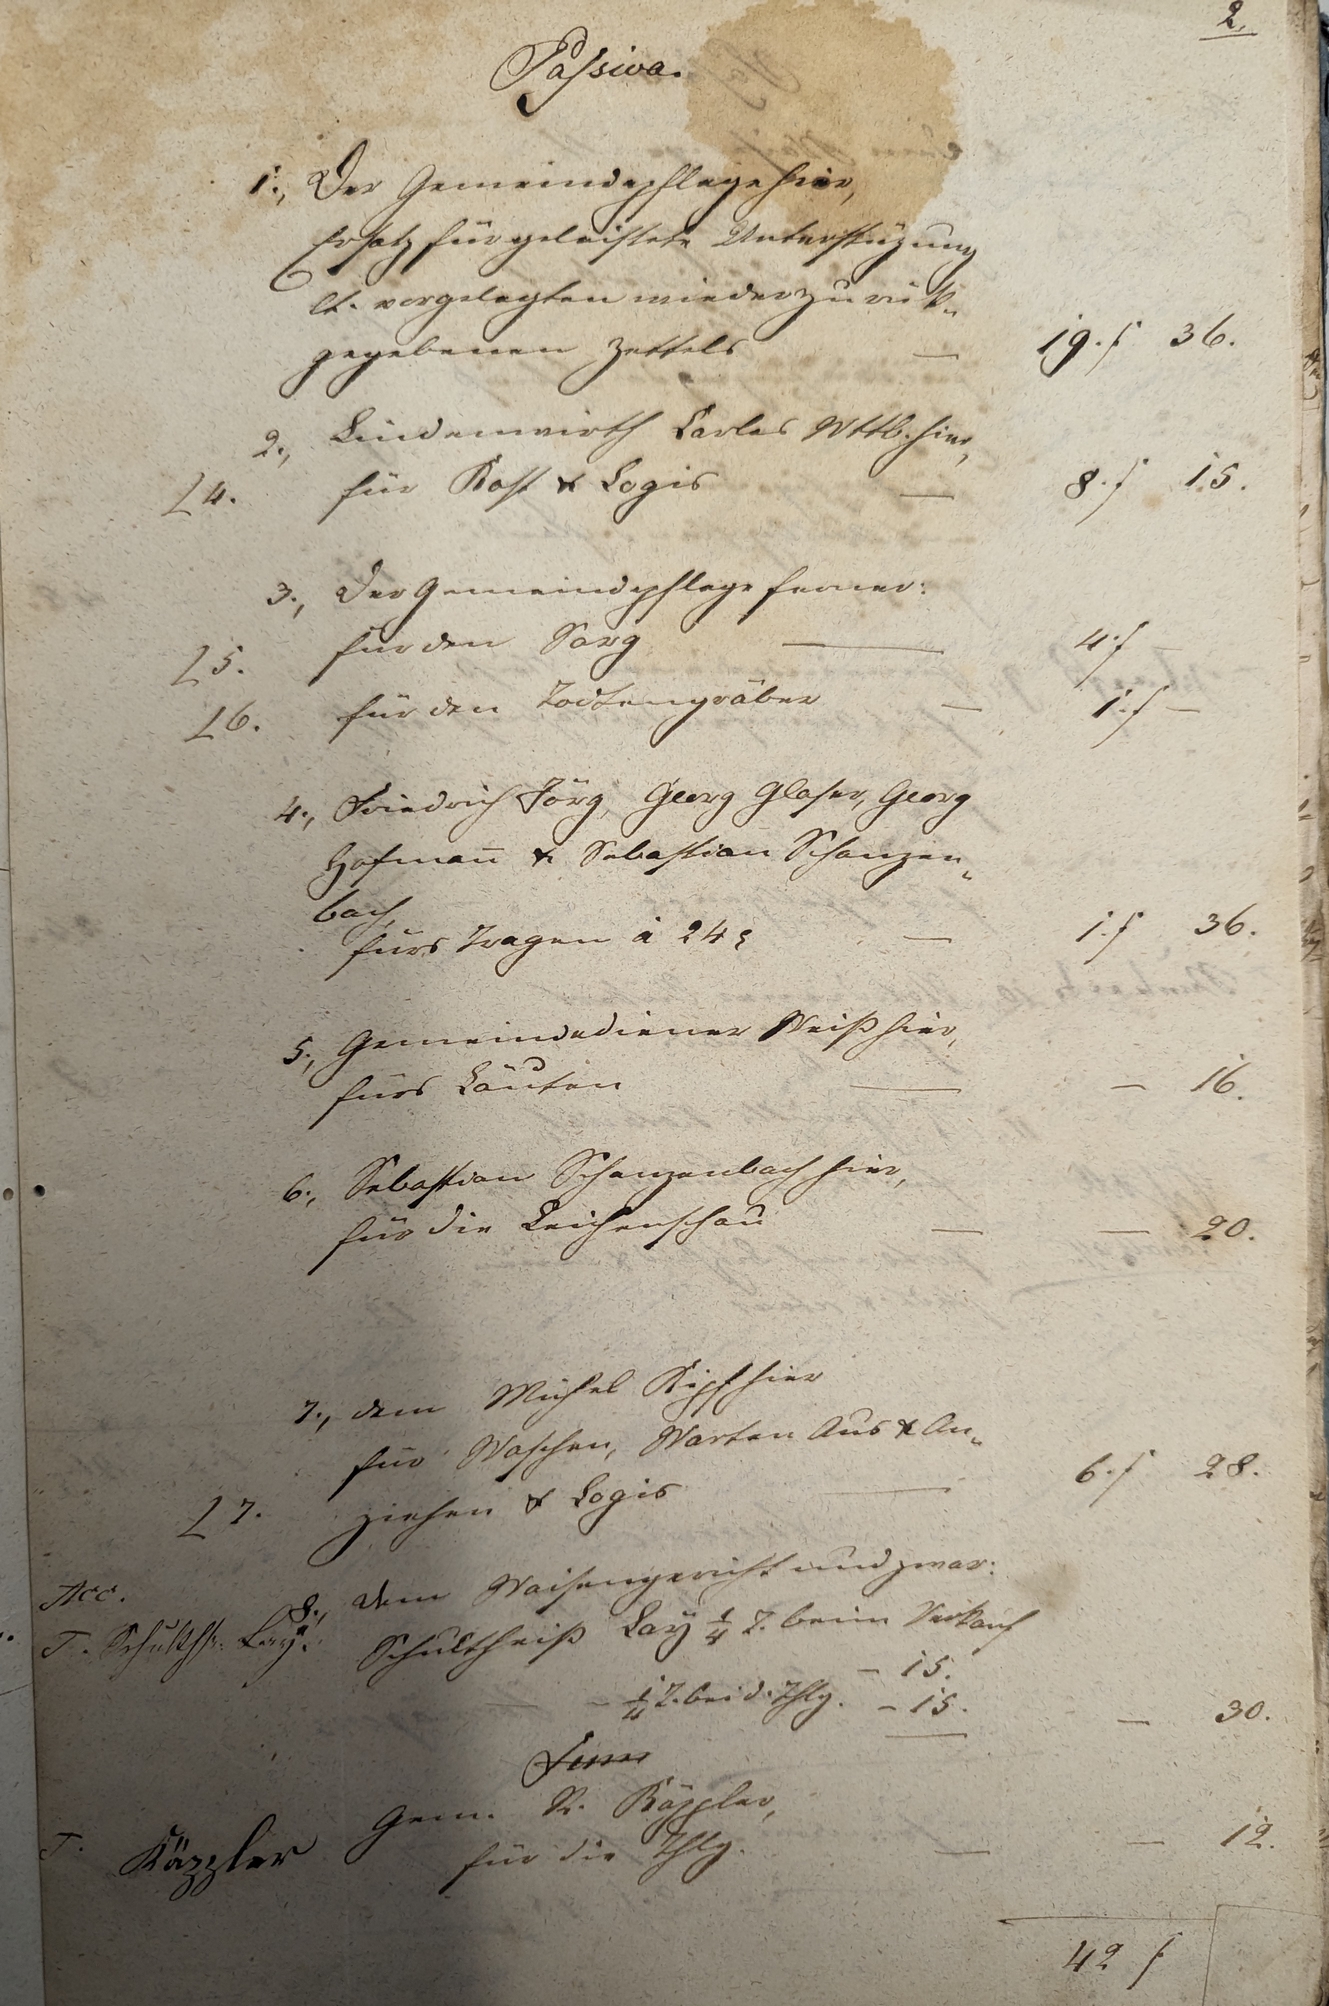 2.
Passiva.
1., Der Gemeindepflege hier,
Ersatz für geleistete Unterstüzung
lt. vorgelegten wiederzurük„
gegebenen Zettels — 19. f 36.
2., Lindenwirth Carles Wttb. hier,
[4. für Kost & Logis — 8. f 15.
3., Der Gemeindepflege ferner:
[5. für den Sarg — 4. f —
[6. für den Todtengräber — 1. f —
4., Friedrich Jörg, Georg Glaser, Georg
Hofman̄ & Sebastian Schanzen„
bach,
fürs Tragen à 24 — 1. f 36.
5., Gemeindediener Weiß hier,
fürs Läuten — — 16.
6., Sebastian Schanzenbach hier,
für die Leichenschau — — 20.
7., dem Michel Kipf hier
für Waschen, Warten Aus & An„
[7. ziehen & Logis — 6. f 28.
Acc. 8., dem Waisengericht und zwar:
T. Schulths. Lay. Schultheiß Lay ¼ T. beim Verkauf
— 15.
— ¼ T. bei d. Thlg. — 15. — 30.
Gem. R. Käppler,
T. Käppler für die Thlg. — — 12.
42 f